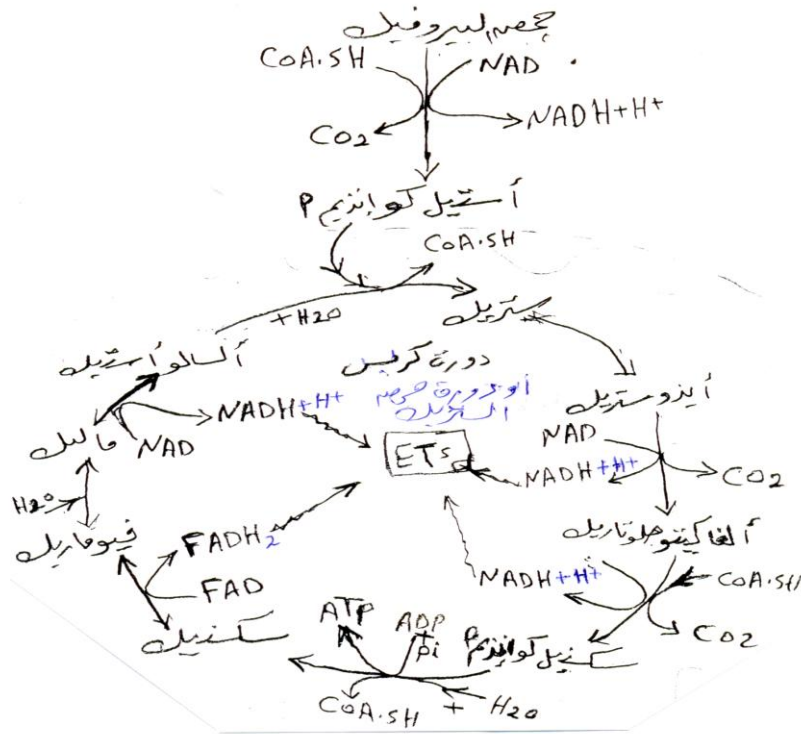 حمض البيروفيك
CoA.SH
NAD
CO2
NADH+H+
أستيل كو إنزيم P
CoA.SH
+H2O
ستريك
ألسالو أستيك
دورة كربس
أو دورة حمض
الستريك
أيزوستريك
NADH+H+
NAD
ماليك
ETS
NAD
NADH+H+
CO2
H2O
فيوماريك
ألفا كيتوجلوتاريك
FADH2
FAD
NADH+H+
CoA.SH
CO2
سكسنيك
ATP
ADP
+
Pi
سكسنيل كو إنزيم P
CoA.SH + H2O